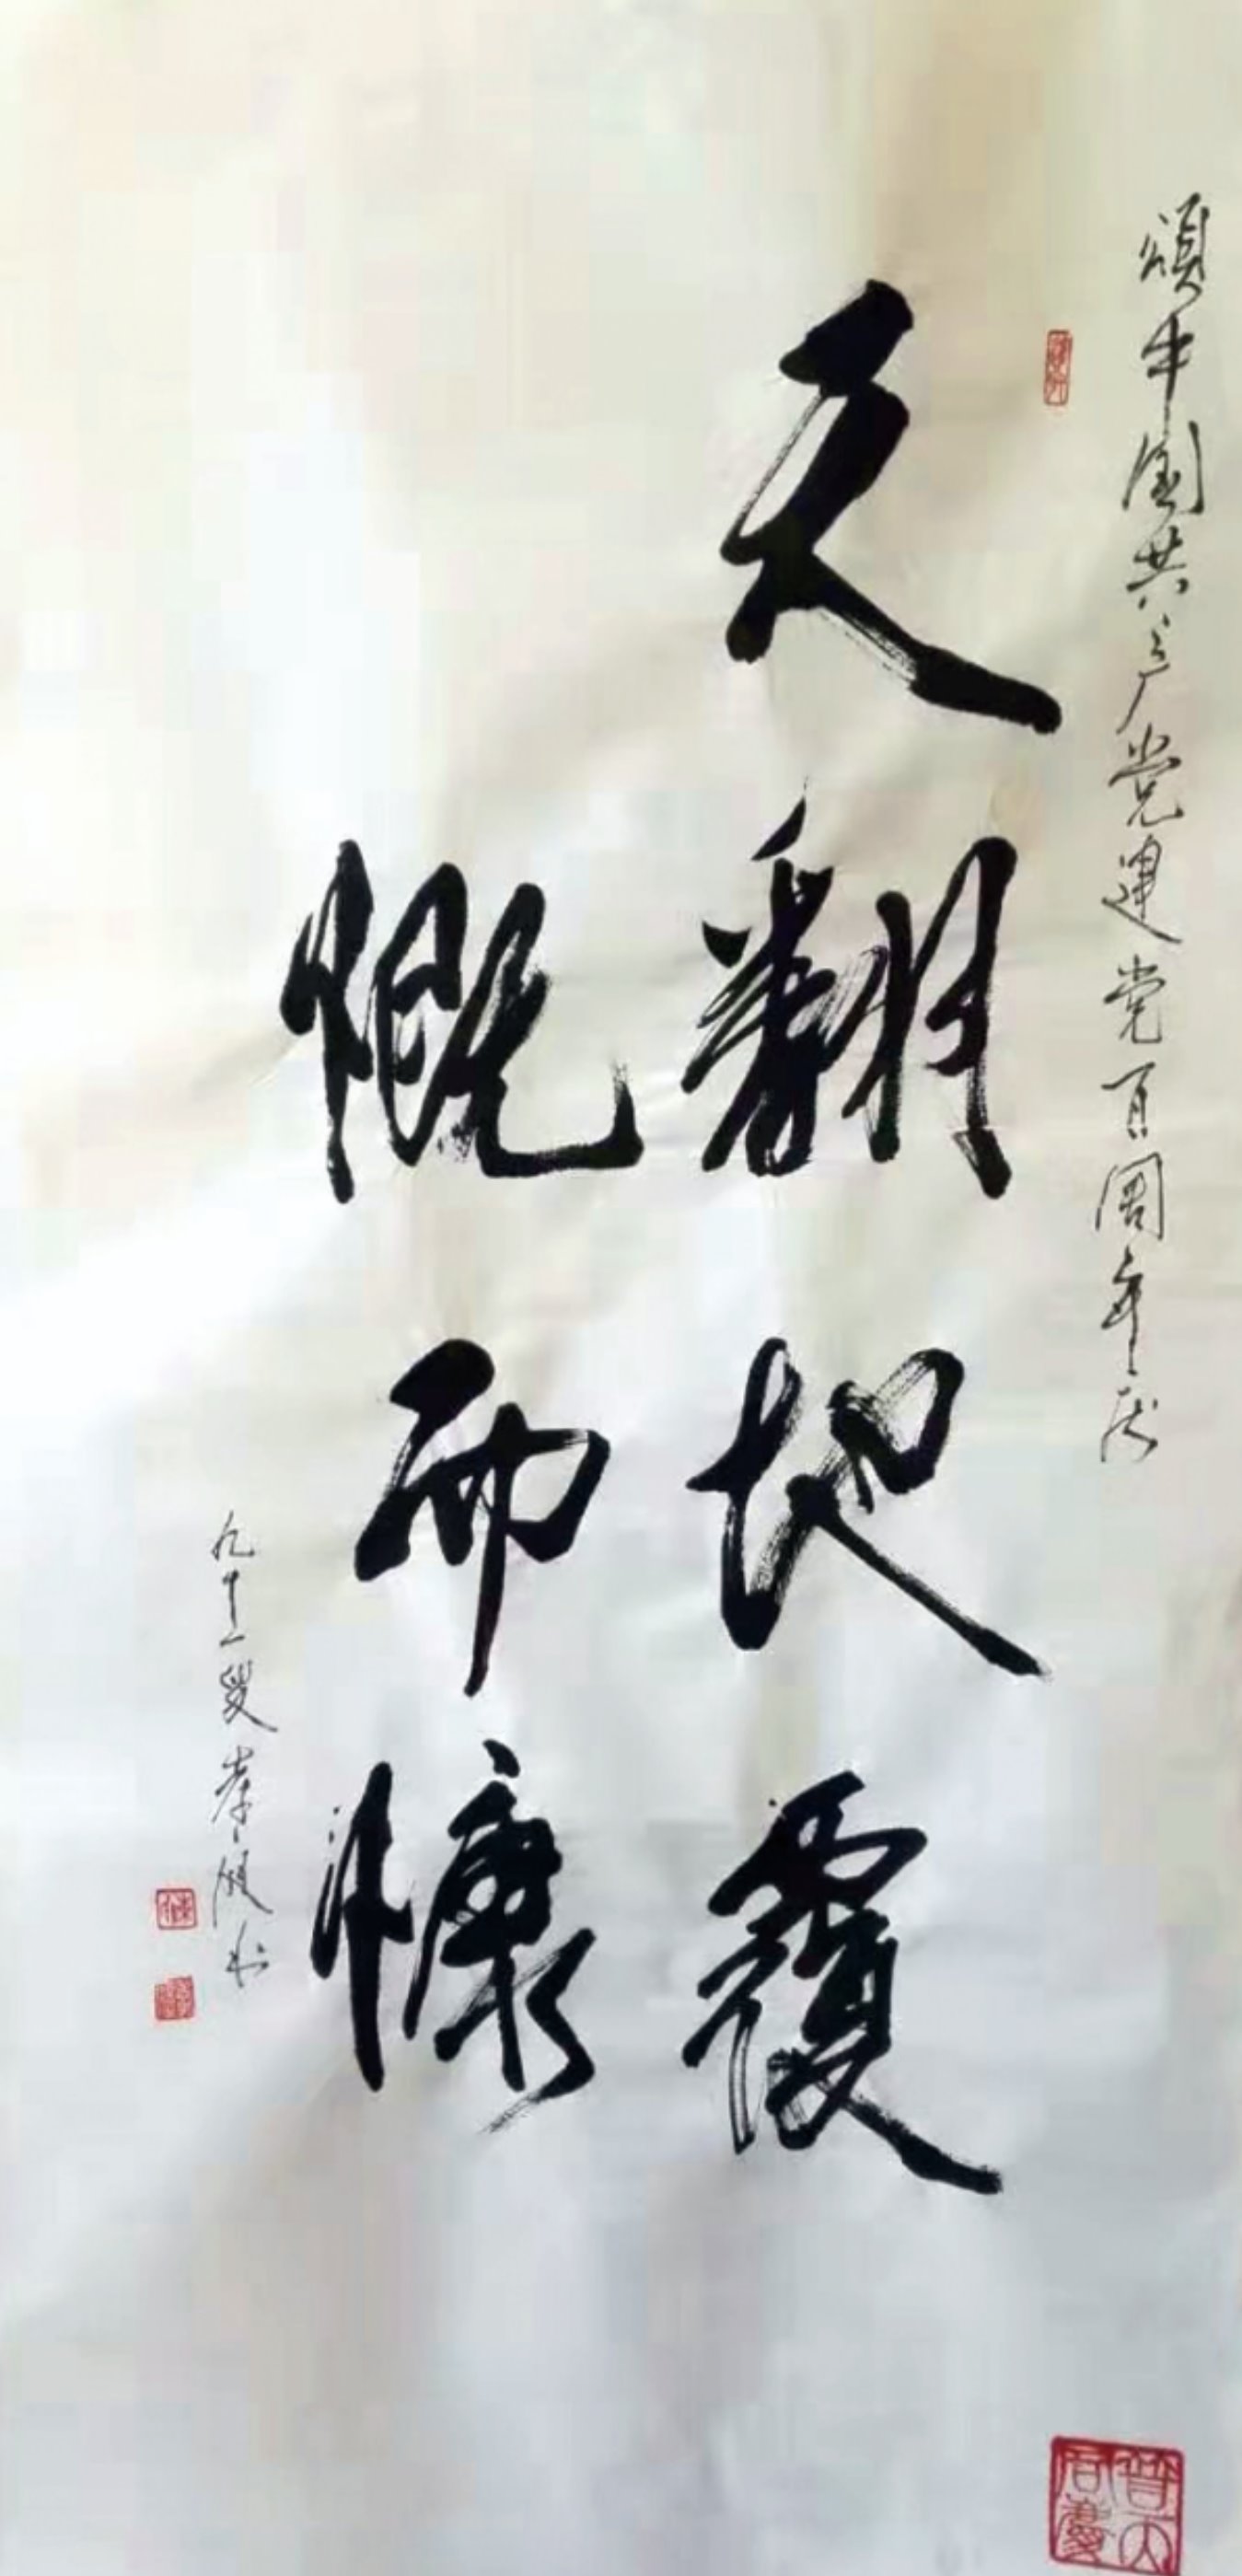 颂中国共产党建党百周年庆
天翻地覆
慨而慷
九十一叟
普天同慶